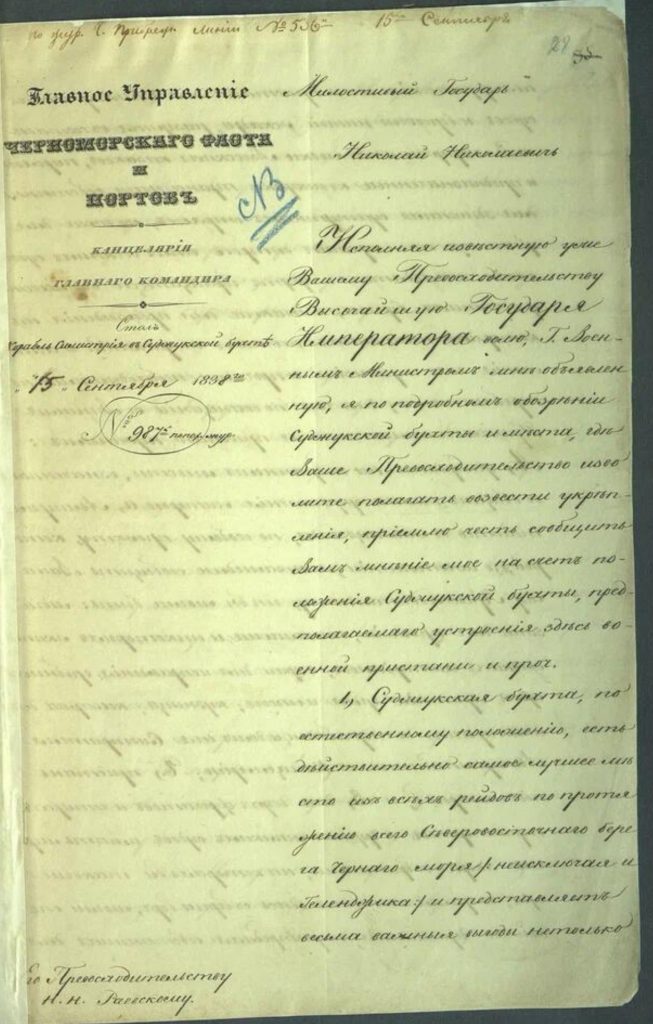 по жур. Ч. Прибреж. Линіи № 536 15го Сентября
28
Главное Управленіе
ЧЕРНОМОРСКАГО ФЛОТА
И
ПОРТОВЪ
КАНЦЕЛЯРІЯ
ГЛАВНАГО КОМАНДИРА
Столъ
Корабль Силистрія въ Суджукской бухтѣ
„15„ Сентября 1838го
№ 987
Милостивый Государь
Николай Николаевичъ
Исполняя извѣстную уже
Вашему Превосходительству
Высочайшую Государя
Императора волю, Г. Воен-
нымъ Министромъ мнѣ объявлен-
ную, я по подробномъ обозрѣніи
Суджукской бухты и мѣста, гдѣ
Ваше Превосходительство изво-
лите полагать возвести укрѣп-
ленія, пріемлю честь сообщить
Вамъ мнѣніе мое на счетъ по-
ложенія Суджукской бухты, пред-
полагаемаго устроенія здѣсь во-
енной пристани и проч.
1, Суджукская бухта, по
естественному положенію, есть
дѣйствительно самое лучшее мѣ
сто изъ всѣхъ рейдовъ по протя
женію всего Сѣверовосточнаго бере
га Чернаго моря /: неисключая и
Геленджика :/ и представляетъ
весьма важныя выгоды нетолько
Его Превосходительству
Н. Н. Раевскому.